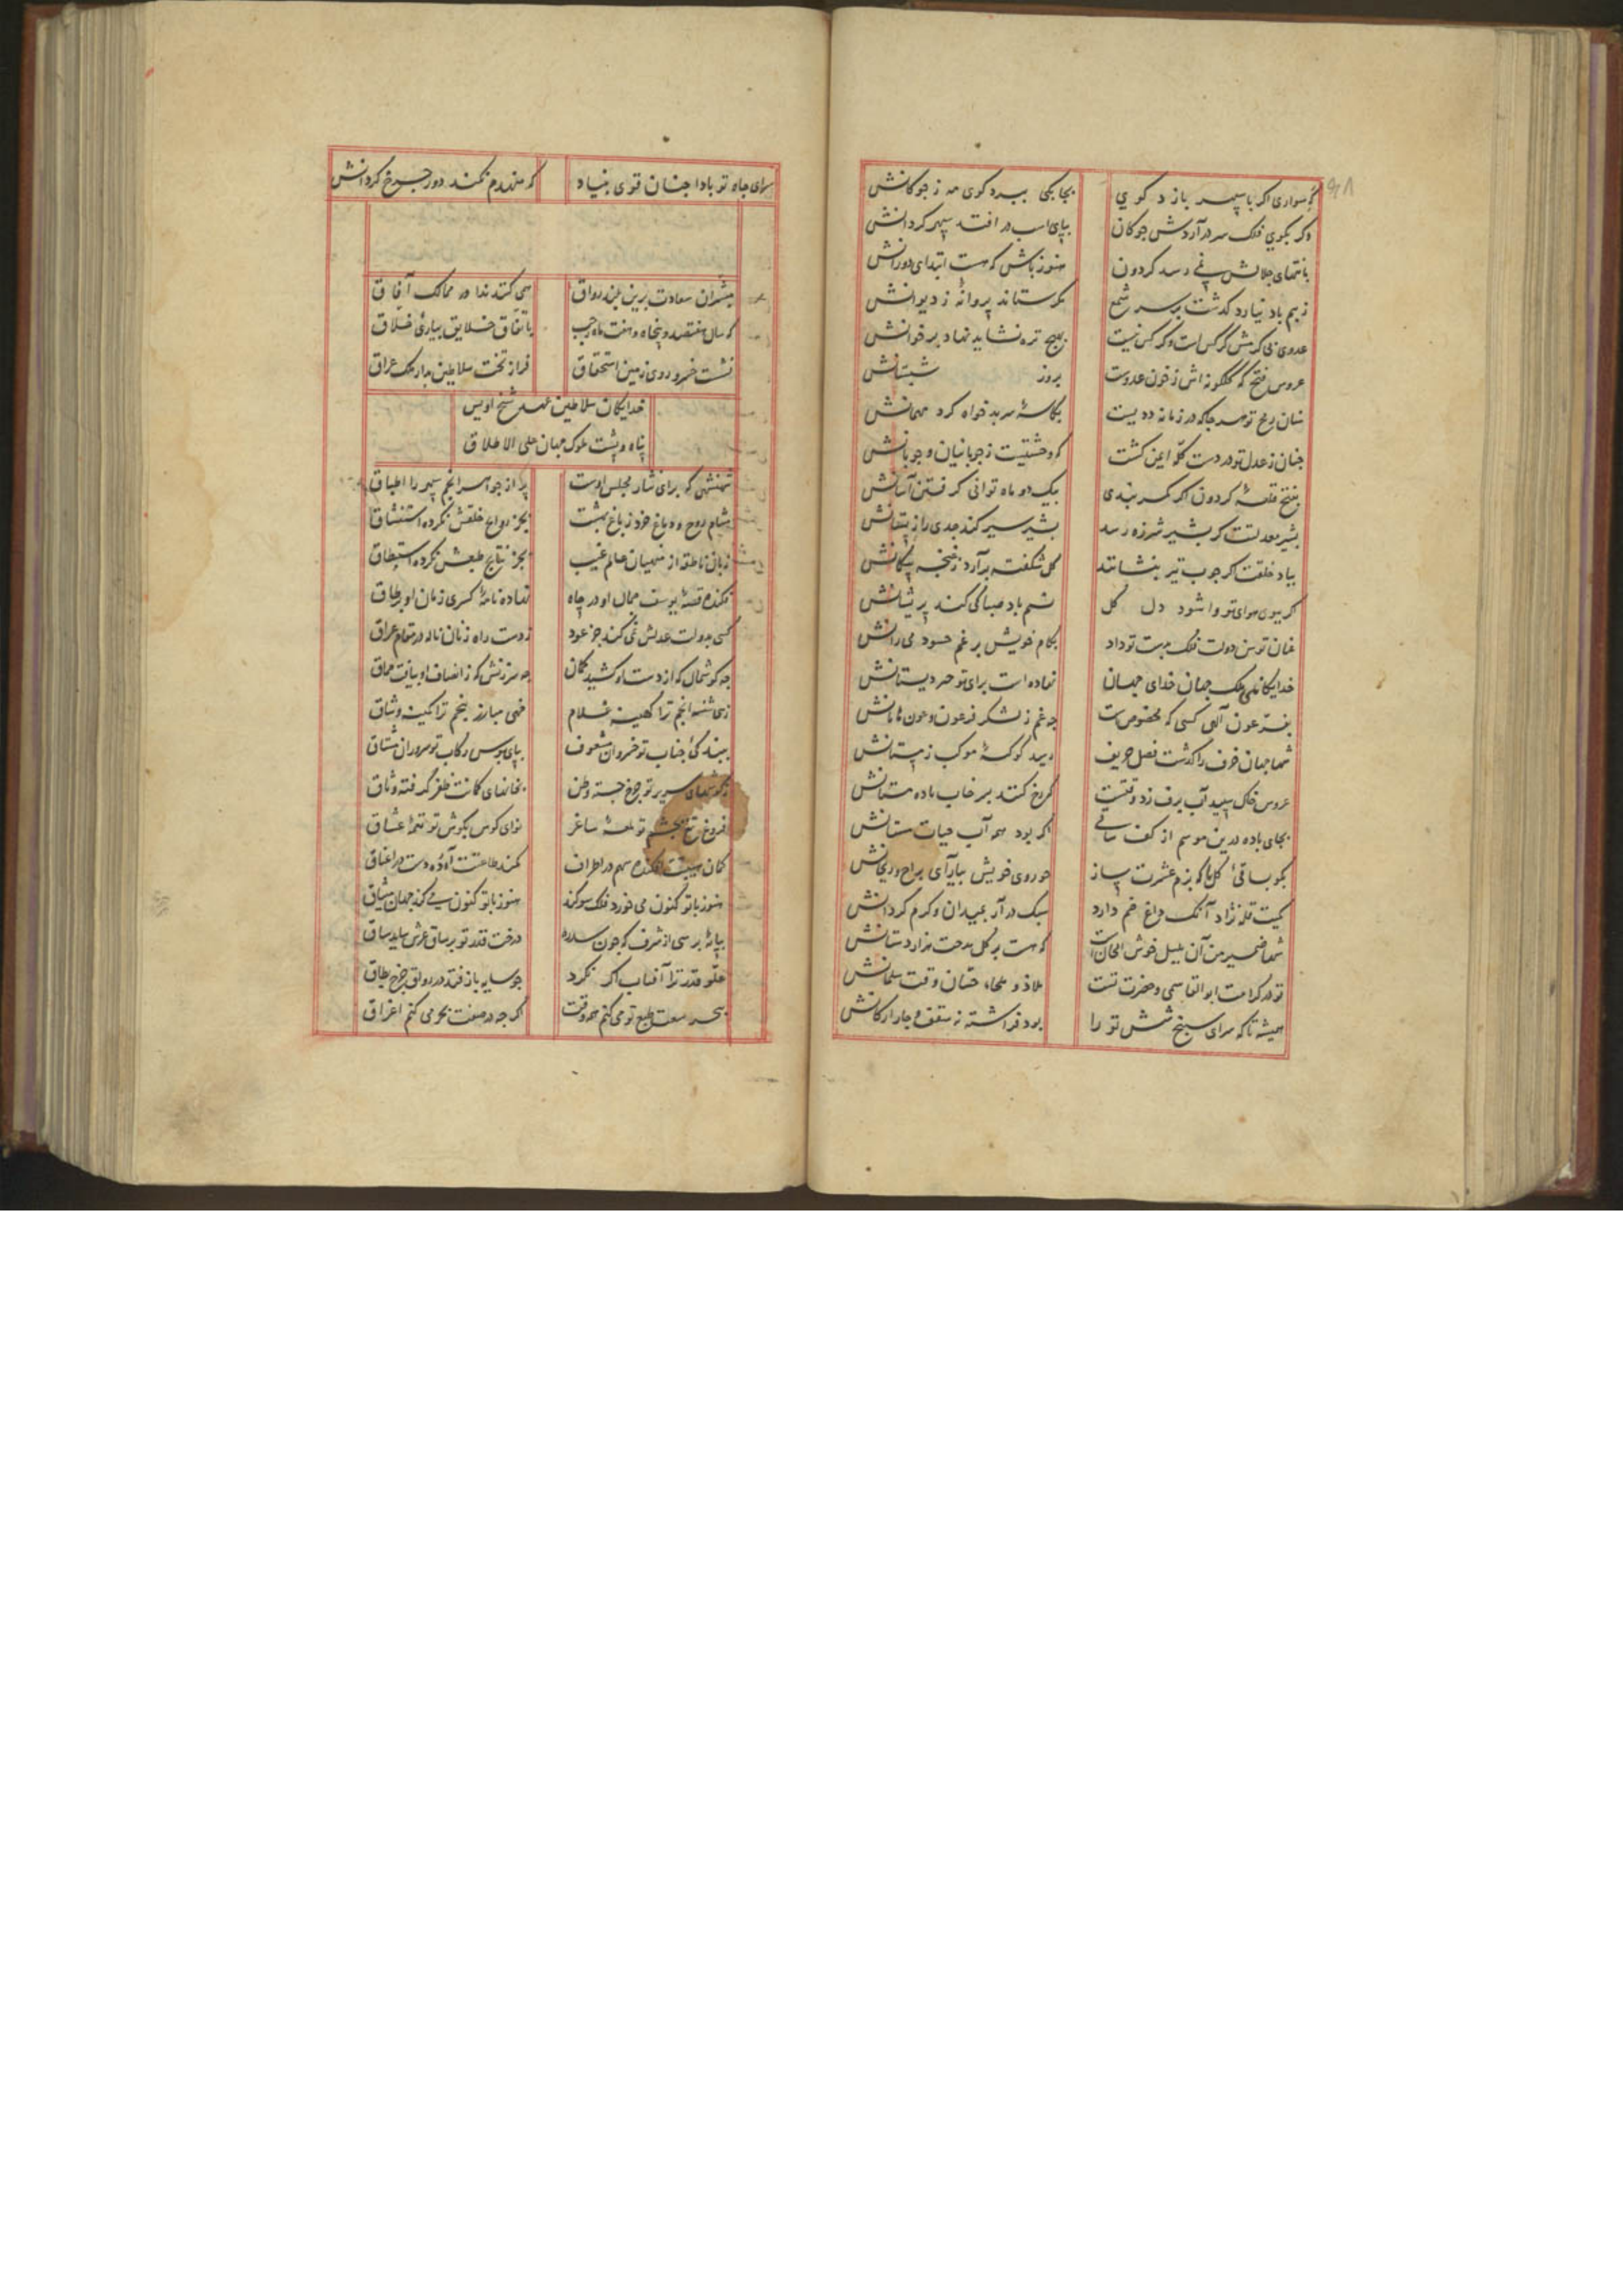 که سواری اگر با سپهر بازد گوی
بچابکی ببرد کوی مه ز جوکانش
وکر بکوی فلک سر درآردش جوکان
بپای اسب در افتد سپهر کردانش
بانتهای جلالش نمی رسد کردون
هنوز باش که هست ابتدای دورانش
ز بیم باد نیارد کذشت بر سر شمع
مکر ستاند پروانهٔ ز دیوانش
عدوی بی کرمش کر کس است وکر کس نیست
بهیچ تره نشاید نهاد بر خوانش
عروس فتح که کلکونه اش ز خون عدوست
بروز شبستانش
سنان رمح تو هر جا که در زمانه ددیست
بکاسهٔ سر بدخواه کرد مهمانش
جنان ز عدل تو در دست کله ایمن کشت
که وحشتیست ز جوبانیان و جوبانش
بفتح قلعهٔ کردون اکر کمر بندی
بیک دو ماه توانی کرفتن آسانش
بشیر معدلتت کر بشیر شرزه رسد
بشیر سیر کند جدی را ز پستانش
بیاد خلقت اکر جوب تیر بنشانند
کل شکفته برآرد ز غنجه پیکانش
کر بیوی هوای تو وا شود دل کل
نسیم باد صبا کی کند پریشانش
عنان توسن دولت فلک بدست تو داد
بکام خویش بر غم حسود می رانش
خدایکانا ملک جهان خدای جهان
نهاده است برای تو حد دیستانش
بفر عون آلهی کسی که مخصوصست
جه غم ز لشکر فرعون و عون هامانش
شها جهان خرف را کذشت فصل خریف
رسید کوکبهٔ موکب زمستانش
عروس خاک سپید آب برف زد وقتست
کر رخ کنند بر خاب باده مستانش
بجای باده درین موسم از کف ساقی
اکر بود همه آب حیات مستانش
بکو بساقی کل رخ که بزم عشرت ساز
جو روی خویش بیارآی براح و ریحانش
کمیت قله نژاد آنک داغ جم دارد
سبک در آر بمیدان و کرم کردانش
شها ضمیر من آن بلبل خوش الحانست
که هست بر کل مدحت هزار دستانش
تو در کرامت ابوالقاسمی و حضرت تست
ملاذ و ملجاء حسان وقت سلمانش
همیشه تا که سرای سپنج شش تو را
بود فراشته نه سقف و جار ارکانش
سرای جاه تو بادا جنان قوی بنیاد
که منهدم نکند دور جرخ کردانش
مبشران سعادت برین بلند رواق
همی کنند ندا در ممالک آفاق
که سال هفتصد و پنجاه و هفت ماه رجب
باتفاق خلایق بیاری خلاق
نشست خسرو روی زمین باستحقاق
فراز تخت سلاطین بدار ملک عراق
خدایکان سلاطین عهد شیخ اویس
پناه و پشت ملوک جهان علی الاطلاق
شهنشهی که برای نثار مجلس اوست
پر از جواهر انجم سپهر را اطباق
مشام روح و دماغ خرد ز باغ بهشت
بجز روایح خلقش نکرده استنشاق
زبان ناطقه از منهیان عالم غیب
بجز نتایج طبعش نکرده استنطاق
فکنده قصهٔ یوسف جمال او در چاه
نهاده نامهٔ کسری زمان او بر طاق
کسی بدولت عدلش نمی کند جز عود
ز دست راه زنان ناله در تمام عراق
جه کوشمال که از دست او کشید کمان
جه سرزنش که ز انصاف او بیافت جماق
زهی شه انجم ترا کهینه غلام
خهی مبارز پنجم ترا کمینه وشاق
ببندکی جناب تو خسروان مشعوف
بپای بوس رکاب تو سروران مشتاق
بکوشهای سریر تو جرخ جسته وطن
بخانهای کمانت ظفر کرفته وثاق
فروغ تیغ بچشم تو لمعهٔ ساغر
نوای کوس بکوش تو نغمهٔ عشاق
کمان هیبتت افکنده سهم در اطراف
کمند طاعتت آورده دست در اعناق
هنوز با تو کنون می خورد فلک سوکند
هنوز با تو کنون می کند جهان میثاق
بپایهٔ برسی از شرف که جون سدره
درخت قدر تو بر ساق عرش ساید ساق
علو قدر ترا آفتاب اکر نکرد
جو سایه باز فتد در رواق جرخ بطاق
ببحر نسبت طبع تو می کنم همه وقت
اکر جه در صفت بحر می کنم اغراق